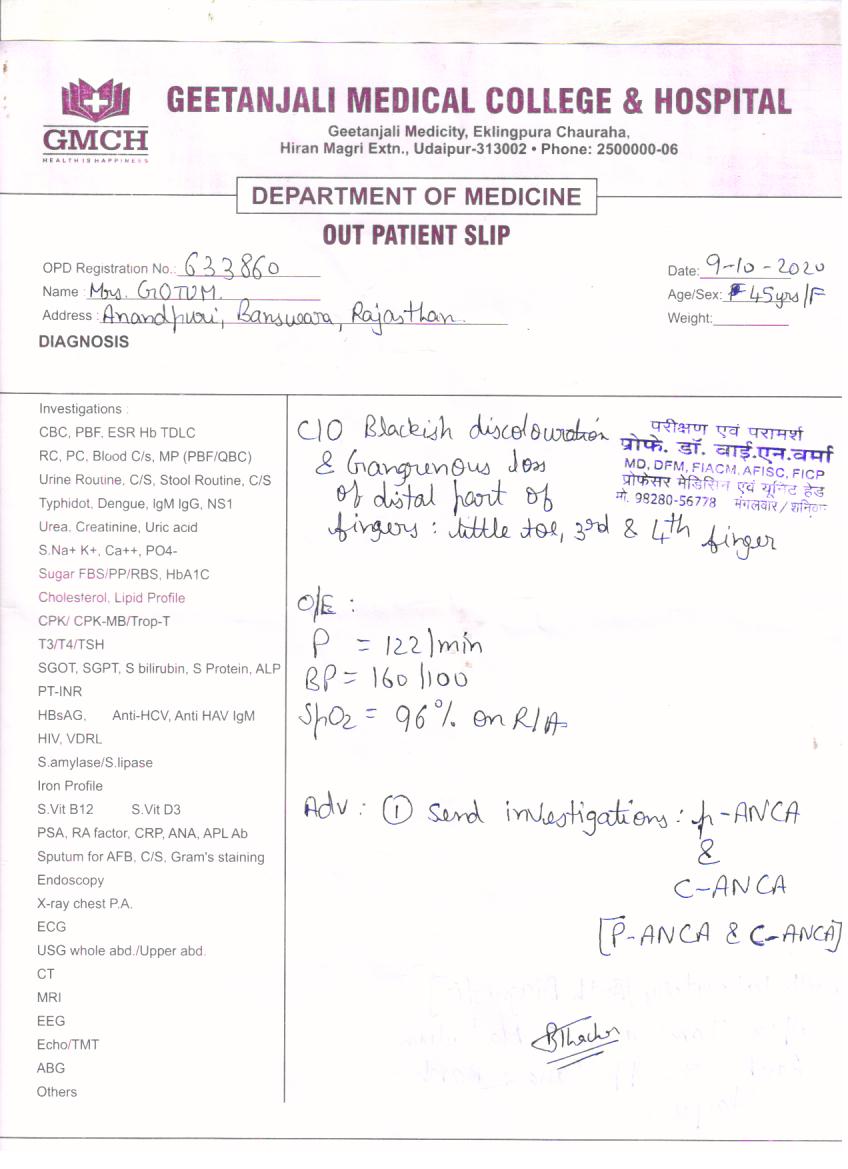 GMCH
HEALTH IS HAPPINESS
GEETANJALI MEDICAL COLLEGE & HOSPITAL
Geetanjali Medicity, Eklingpura Chauraha,
Hiran Magri Extn., Udaipur-313002 • Phone: 2500000-06
DEPARTMENT OF MEDICINE
OUT PATIENT SLIP
OPD Registration No.: 633860
Date: 9-10-2020
Name : Mrs. GOTUM.
Age/Sex: 45yrs/F
Address : Anandpuri, Banswara, Rajasthan.
Weight:
DIAGNOSIS
Investigations :
CBC, PBF, ESR Hb TDLC
RC, PC, Blood C/s, MP (PBF/QBC)
Urine Routine, C/S, Stool Routine, C/S
Typhidot, Dengue, IgM IgG, NS1
Urea, Creatinine, Uric acid
S.Na+ K+, Ca++, PO4-
Sugar FBS/PP/RBS, HbA1C
Cholesterol, Lipid Profile
CPK/ CPK-MB/Trop-T
T3/T4/TSH
SGOT, SGPT, S bilirubin, S Protein, ALP
PT-INR
HBsAG, Anti-HCV, Anti HAV IgM
HIV, VDRL
S.amylase/S.lipase
Iron Profile
S.Vit B12 S.Vit D3
PSA, RA factor, CRP, ANA, APL Ab
Sputum for AFB, C/S, Gram's staining
Endoscopy
X-ray chest P.A.
ECG
USG whole abd./Upper abd.
CT
MRI
EEG
Echo/TMT
ABG
Others
C/O Blackish discolouration
& Gangrenous loss
of distal part of
fingers : little toe, 3rd & 4th finger
परीक्षण एवं परामर्श
प्रोफे. डॉ. वाई.एन.वर्मा
MD, DFM, FIACM, AFISC, FICP
प्रोफेसर मेडिसिन एवं यूनिट हेड
मो. 98280-56778 मंगलवार / शनिवार
O/E :
P = 122/min
BP = 160/100
SpO2 = 96% on R/A
Adv : ① Send investigations : p-ANCA
&
C-ANCA
[P-ANCA & C-ANCA]